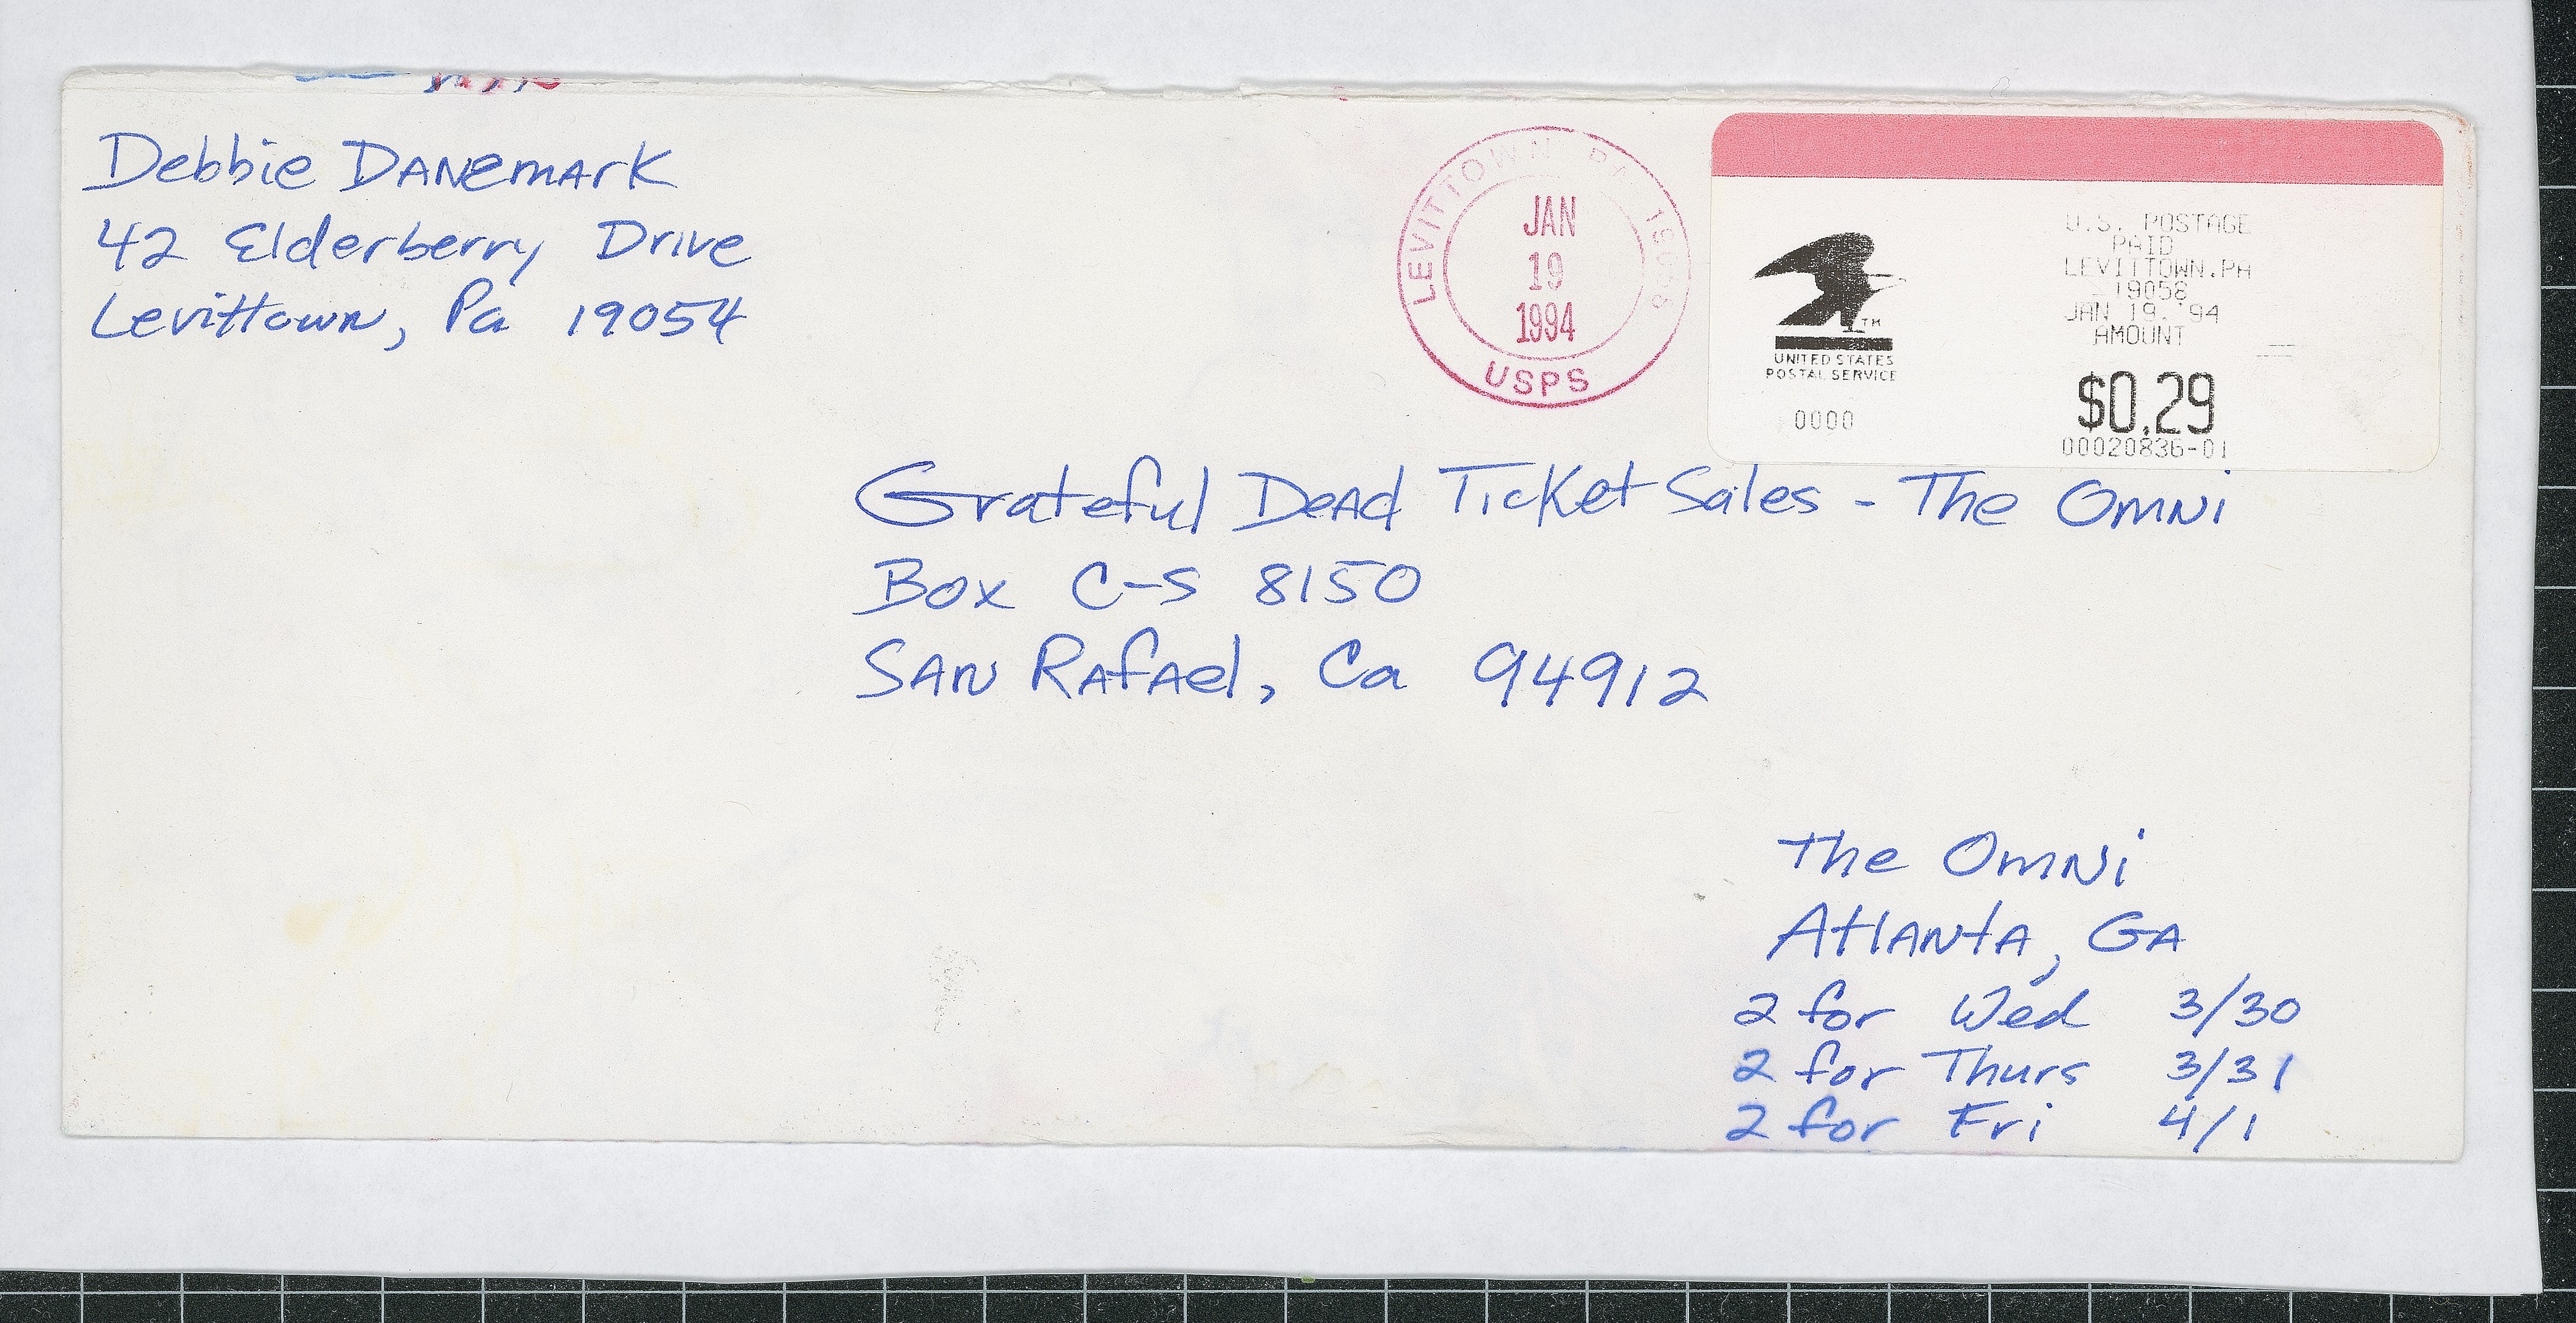 Debbie Danemark
42 Elderberry Drive
Levittown, Pa 19054
LEVITTOWN PA 19058
JAN
19
1994
USPS
UNITED STATES
POSTAL SERVICE
TM
0000
U.S. POSTAGE
PAID
LEVITTOWN.PA
19058
JAN 19.'94
AMOUNT
$0.29
00020836-01
Grateful Dead Ticket Sales - The Omni
Box C-S 8150
San Rafael, Ca 94912
The Omni
Atlanta, GA
2 for Wed 3/30
2 for Thurs 3/31
2 for Fri 4/1